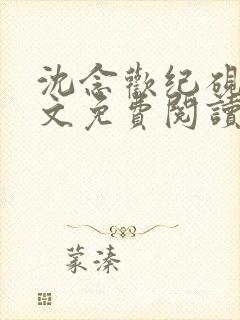 沈念歡紀硯
文免費閱讀
蒙溱